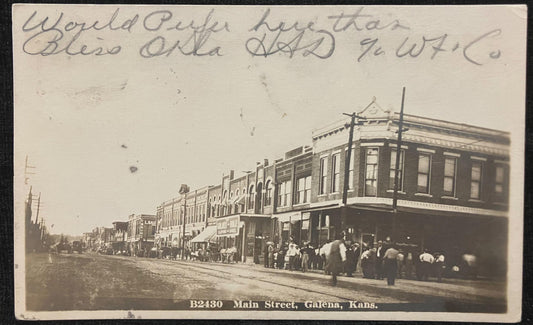 Would Prefer here than
Bliss Okla HAD % W F & Co
B2430 Main Street, Galena, Kans.